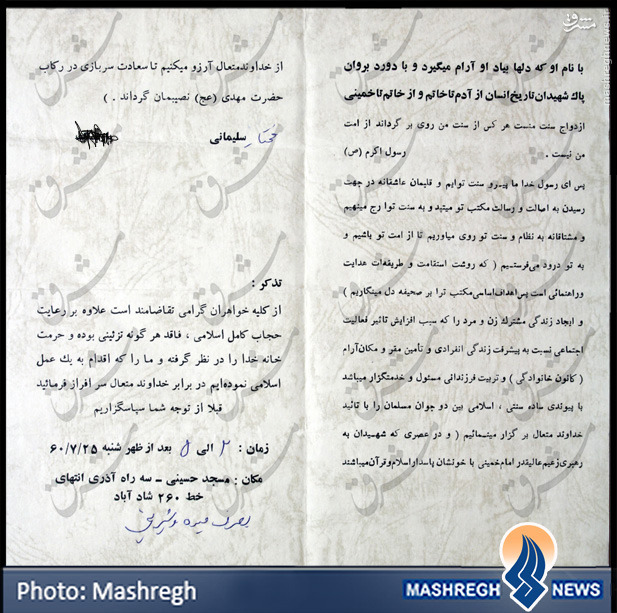 با نام او که دلها بیاد او آرام میگیرد و با دورد بروان
پاك شهیدان تاریخ انسان از آدم تا خاتم و از خاتم تا خمینی
ازدواج سنت منست هر کس از سنت من روی بر گرداند از امت
من نیست . رسول اکرم (ص)
پس ای رسول خدا ما پیرو سنت توایم و قلبمان عاشقانه در جهت
رسیدن به اصالت و رسالت مکتب تو میتپد و به سنت توا رج مینهیم
و مشتاقانه به نظام و سنت تو روی میاوریم تا از امت تو باشیم و
به تو درود می‌فرستیم ( که روشت استقامت و طریقه‌ات هدایت
و راهنمائی است پس اهداف اساسی مکتب ترا بر صحیفه دل مینگاریم )
و ایجاد زندگی مشترك زن و مرد را که سبب افزایش تاثیر فعالیت
اجتماعی نسبت به پیشرفت زندگی انفرادی و تأمین مقر و مکان آرام
( کانون خانوادگی ) و تربیت فرزندانی مسئول و خدمتگزار میباشد
با پیوندی ساده سنتی ، اسلامی بین دو جوان مسلمان را با تائید
خداوند متعال بر گزار مینمائیم ( و در عصری که شهیدان به
رهبری زعیم عالیقدر امام خمینی با خونشان پاسدار اسلام و قرآن میباشند
از خداوند متعال آرزو میکنیم تا سعادت سربازی در رکاب
حضرت مهدی (عج) نصیبمان گرداند . )
سلیمانی
تذکر :
از کلیه خواهران گرامی تقاضامند است علاوه بر رعایت
حجاب کامل اسلامی ، فاقد هر گونه تزئینی بوده و حرمت
خانه خدا را در نظر گرفته و ما را که اقدام به یك عمل
اسلامی نموده‌ایم در برابر خداوند متعال سر افراز فرمائید
قبلا از توجه شما سپاسگزاریم
زمان : ۲ الی ۵ بعد از ظهر شنبه ۶۰/۷/۲۵
مکان : مسجد حسینی - سه راه آذری انتهای
خط ۲۶۰ شاد آباد
بصرف میوه و شیرینی
Photo: Mashregh
MASHREGH NEWS
mashreghnews.ir
مشرق